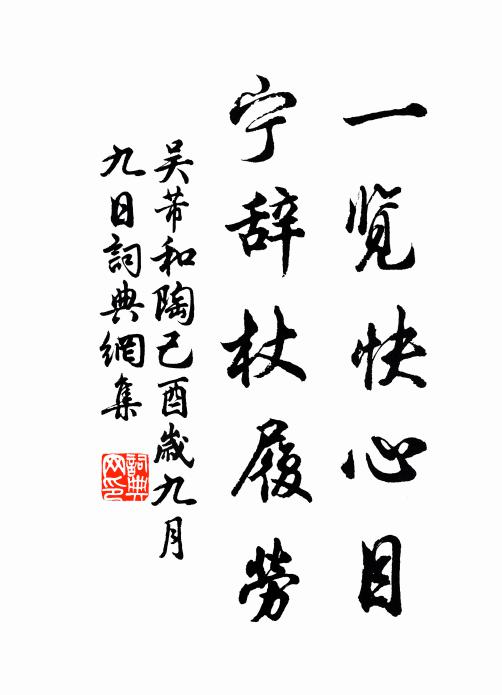 一览快心目
宁辞杖履劳
吴芾和陶己酉岁九月
九日詞典網集
詞典网印